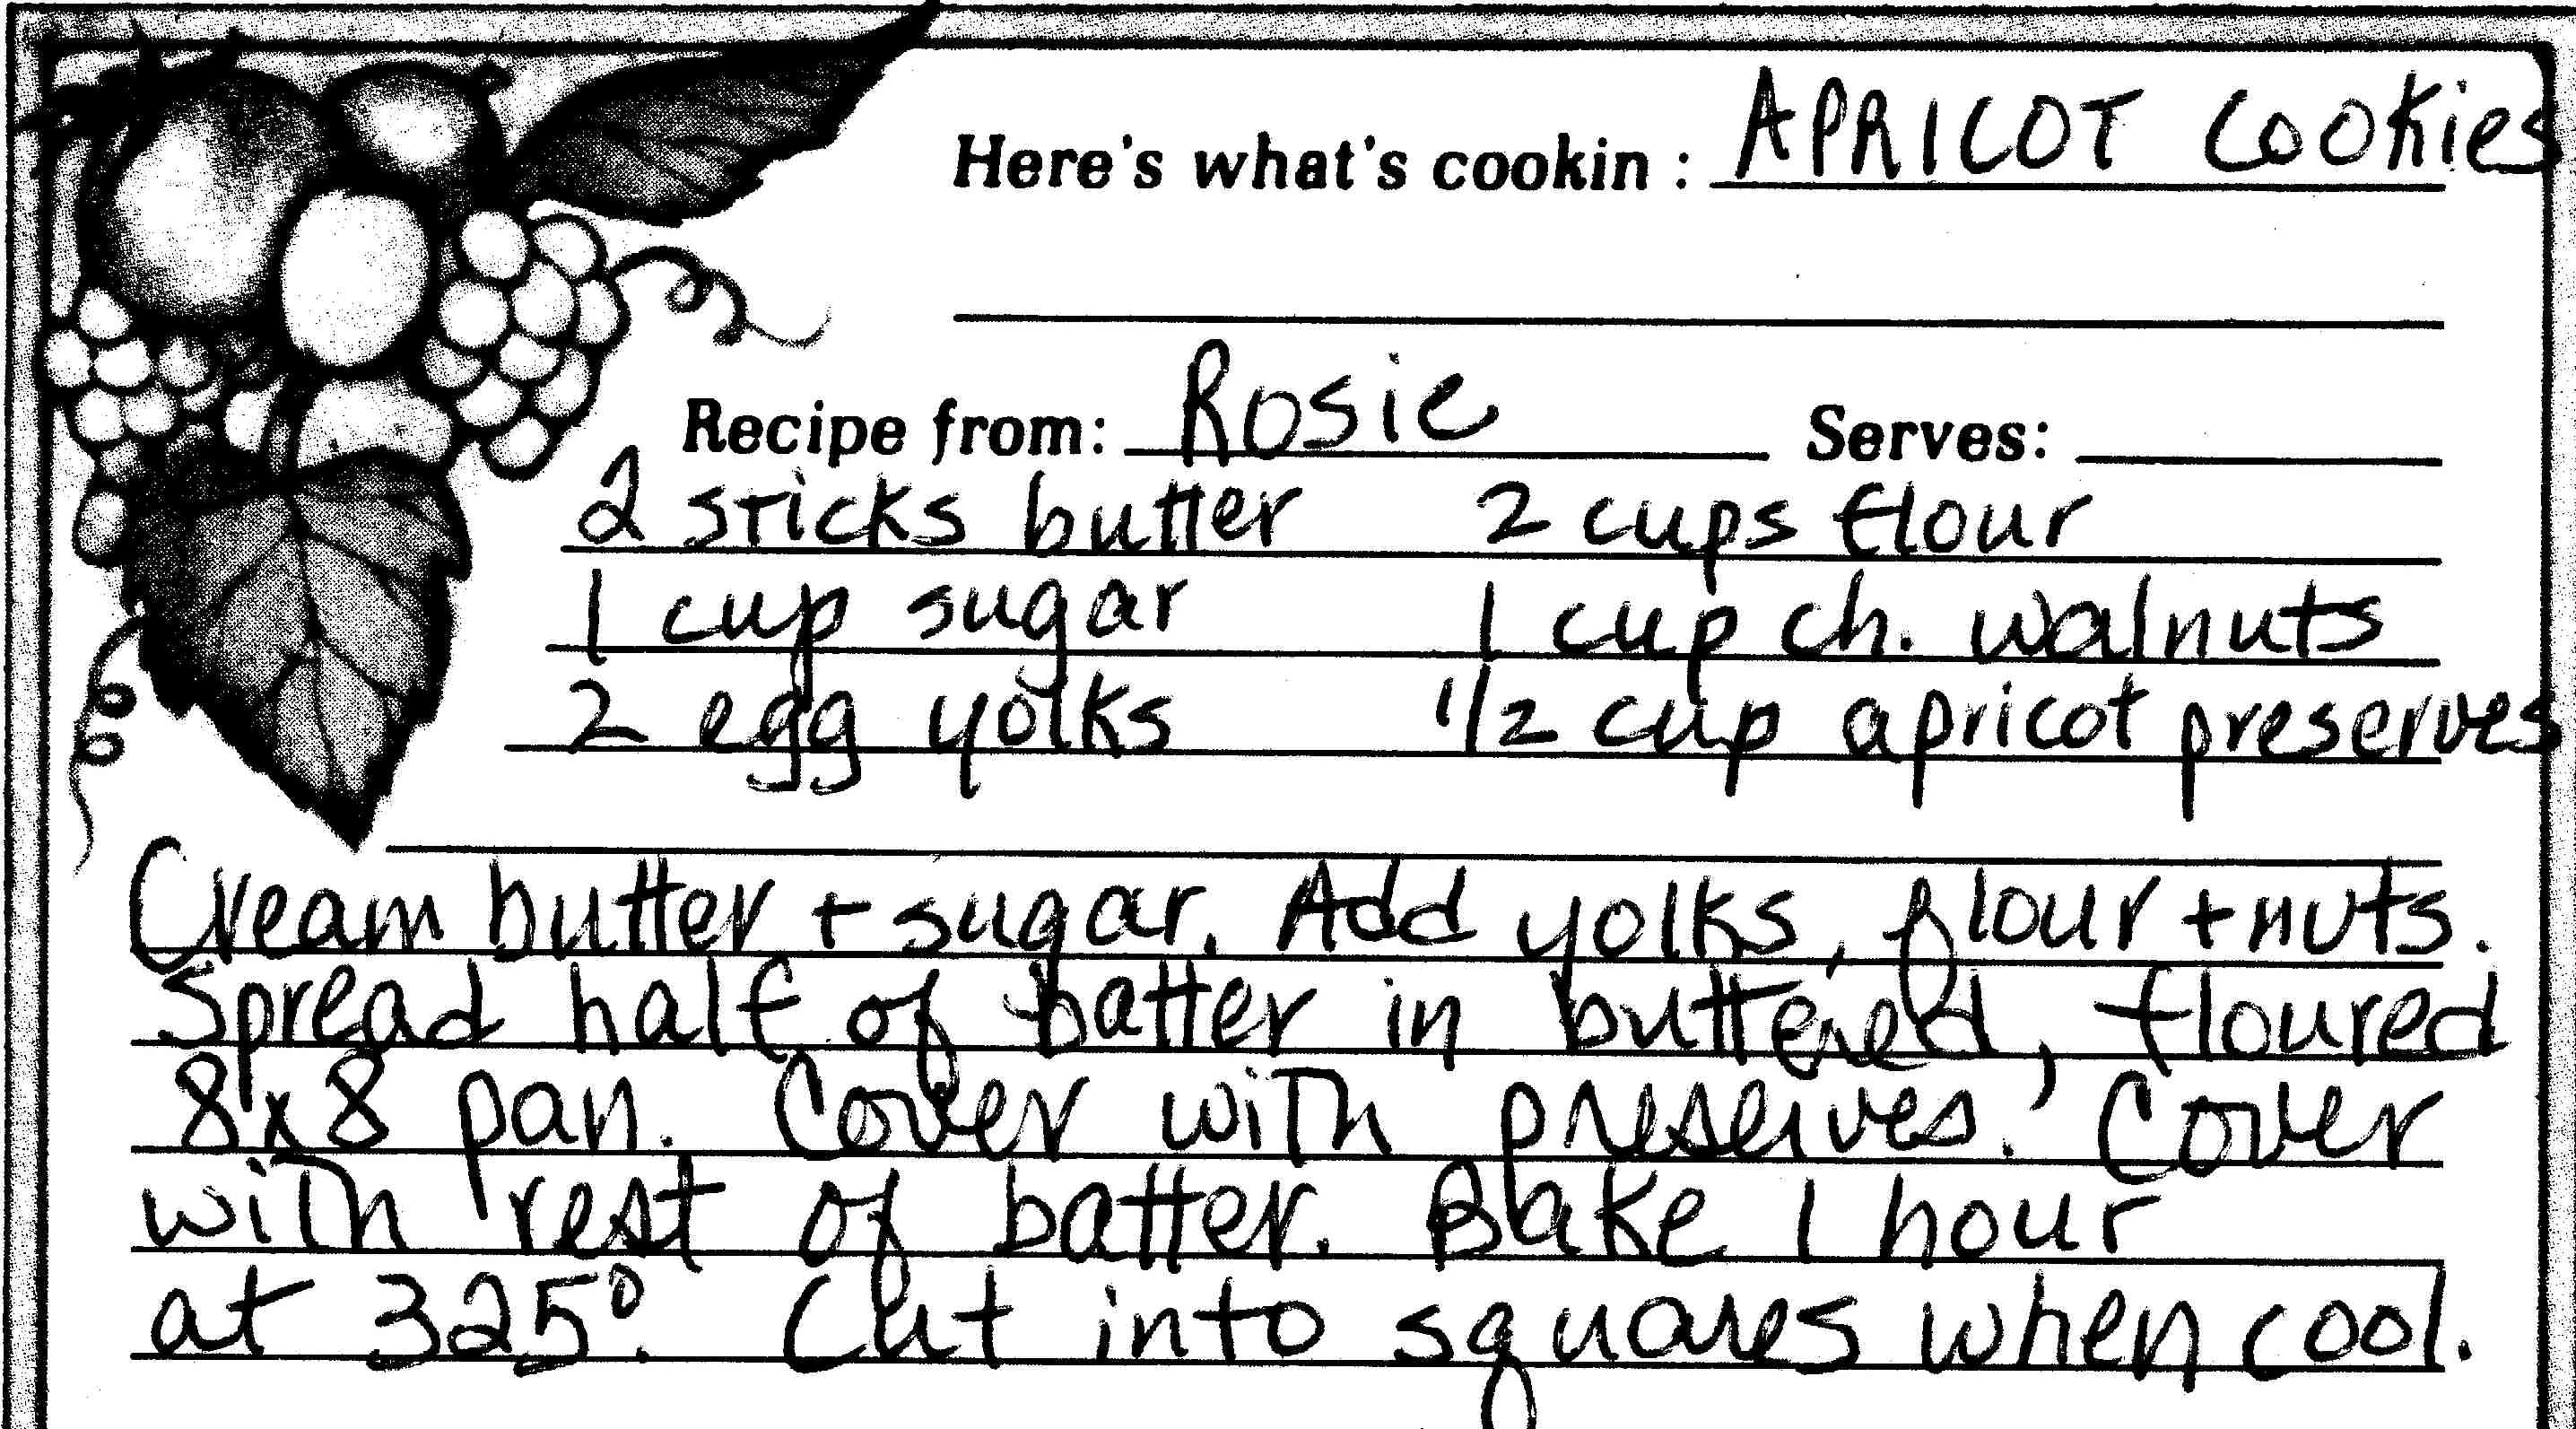 Here's what's cookin : APRICOT Cookies
Recipe from: Rosie Serves:
2 sticks butter 2 cups flour
1 cup sugar 1 cup ch. walnuts
2 egg yolks 1/2 cup apricot preserves
Cream butter + sugar. Add yolks, flour + nuts.
Spread half of batter in buttered, floured
8x8 pan. Cover with preserves. Cover
with rest of batter. Bake 1 hour
at 325°. Cut into squares when cool.